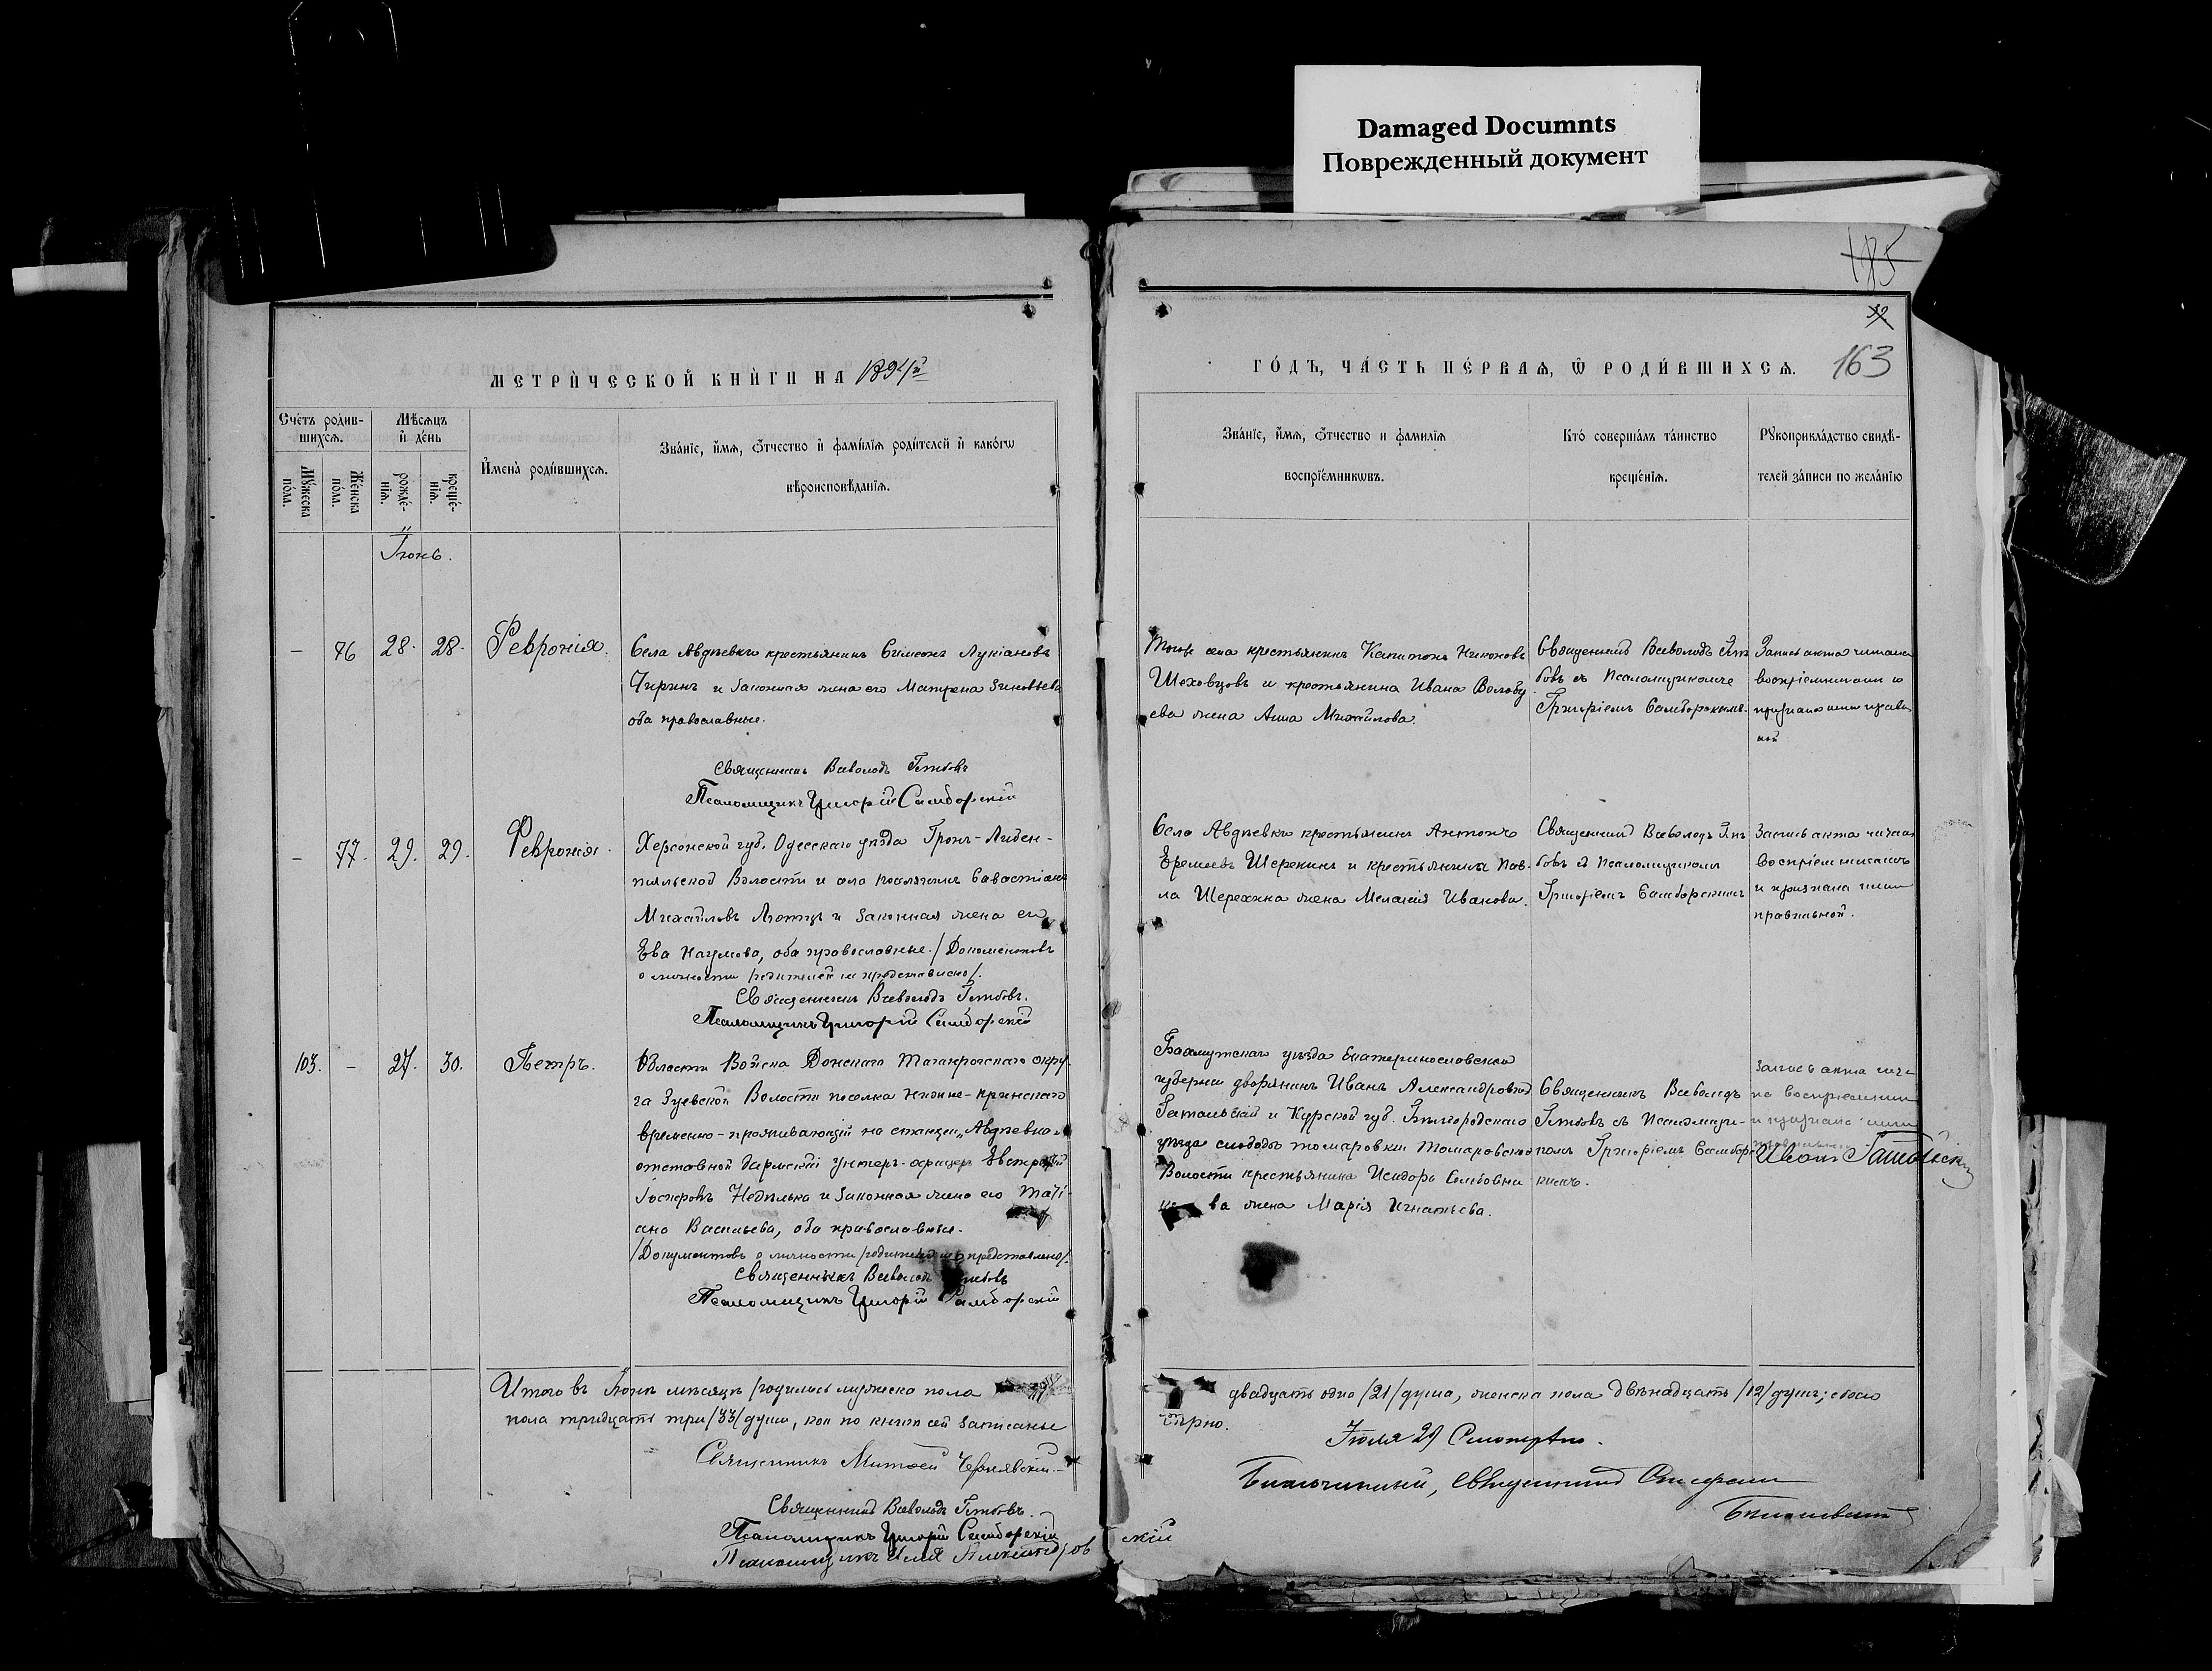 Damaged Documnts
Поврежденный документ
185
32
163
МЕТРИ́ЧЕСКОЙ КНИ́ГИ НА 1894й
ГО́ДЪ, ЧА́СТЬ ПЕ́РВАѦ, Ѿ РОДИ́ВШИХСѦ.
Сче́тъ роди́в-
шихсѧ.
Мѣ́сѧцъ
и҆ де́нь
Мꙋ́жеска
по́ла.
Же́нска
по́ла.
рожде́-
нїѧ.
креще́-
нїѧ.
И҆мена̀ роди́вшихсѧ.
Зва́нїе, и҆́мѧ, ѻ҆́тчество и҆ фами́лїѧ роди́телей и҆ како́гѡ
вѣроисповѣ́данїѧ.
Зва́нїе, и҆́мѧ, ѻ҆́тчество и фамилїѧ
воспрїе́мникѡвъ.
Кто̀ соверша́лъ та́инство
креще́нїѧ.
Рꙋкоприкла́дство свидѣ́-
телей за́писи по жела́нїю
Іюнь.
— 76 28. 28. Февронія.
Села Авдѣевки крестьянинъ Симеонъ Лукіановъ
Чиринъ и законная жена его Матрена Зиновьева
оба православные.
Священникъ Всеволодъ Глѣбовъ
Псаломщикъ Григорій Самборскій
Того же села крестьянинъ Капитонъ Никоновъ
Шеховцовъ и крестьянина Ивана Волобу
ева жена Анна Михайлова.
Священникъ Всеволодъ Глѣ
бовъ съ Псаломщикомъ
Григоріемъ Самборскимъ.
Запись акта читана
воспріемникамъ и
признана ими правиль
ной
— 77. 29. 29. Февронія.
Херсонской губ. Одесскаго уѣзда Гронъ-Либен-
тальской Волости и села поселянинъ Савастіанъ
Михайловъ Лютцъ и законная жена его
Ева Наумова, оба православные. /Документовъ
о личности родителей не представлено/.
Священникъ Всеволодъ Глѣбовъ.
Псаломщикъ Григорій Самборскій
Села Авдѣевки крестьянинъ Антонъ
Еремѣевъ Шерехинъ и крестьянина Пав-
ла Шерехина жена Меланія Иванова.
Священникъ Всеволодъ Глѣ
бовъ съ Псаломщикомъ
Григоріемъ Самборскимъ
Запись акта читана
воспріемникамъ
и признана ими
правильной.
103. — 27. 30. Петръ.
Области Войска Донскаго Таганрогскаго окру-
га Зуевской Волости поселка Нижне-Крынскаго
временно-проживающій на станціи „Авдѣевка"
отставной унтеръ-офицеръ
Недѣлька и законная жена его Таті-
ана Васильева, оба православные.
/Документовъ о личности родителей не представлено/.
Священникъ Всеволодъ Глѣбовъ
Псаломщикъ Григорій Самборскій
Бахмутскаго уѣзда Екатеринославской
губерніи дворянинъ Иванъ Александровъ
и Курской губ. Бѣлгородскаго
уѣзда слободы Томаровки Томаровской
Волости крестьянина Исидора
ва жена Марія Игнатьева.
Священникъ Всеволодъ
Глѣбовъ съ Псаломщи-
комъ Григоріемъ Самборс
кимъ.
Запись акта чита
на воспріемникамъ
и признана ими
правильной.
Иванъ
Итого въ Іюнѣ мѣсяцѣ родилось мужеска пола двадцать одна /21/ душа, женска пола двѣнадцать /12/ душъ; обоего
пола тридцать три /33/ души, кои по книгѣ сей записаны вѣрно.
Священникъ Чернявскій.
Священникъ Всеволодъ Глѣбовъ.
Псаломщикъ Григорій Самборскій
Псаломщикъ Илія Александровскій
Іюля 29 Смотрѣно.
Благочинный, Священникъ